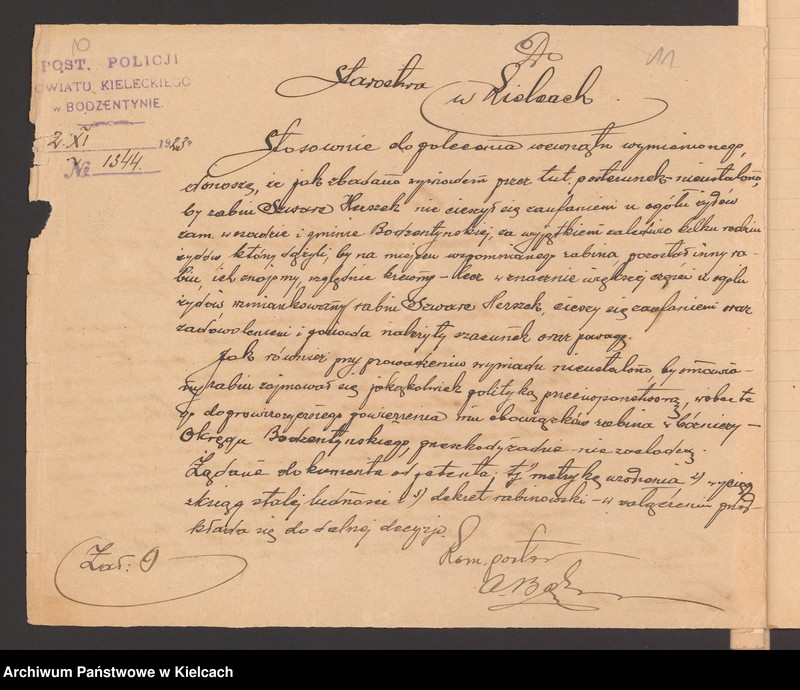 10
11
POST. POLICJI
POWIATU KIELECKIEGO
w BODZENTYNIE.
2/XI 1923 r
№ 1344.
Do
Starostwa
w Kielcach.
Stosownie do polecenia wewnątrz wymienionego,
donoszę, że jak zbadano wywiadem przez tut. posterunek nieustalono,
by rabin Szwarc Herszek nie cieszył się zaufaniem u ogółu żydów
zam. w osadzie i gminie Bodzentyńskiej, za wyjątkiem zaledwie kilku rodzin
żydów którzy dążyli, by na miejscu wspomnianego rabina pozostał inny ra-
bin, ich znajomy, względnie krewny – lecz w znacznie większej części u ogółu
żydów wzmiankowany rabin Szwarc Herszek, cieszy się zaufaniem oraz
zadowoleniem i posiada należyty szacunek oraz powagę.
Jak również przy prowadzeniu wywiadu nieustalono by omawia-
ny rabin zajmował się jakąkolwiek polityką przeciwpaństwową, wobec te
go do powierzenia mu obowiązków rabina w Bóżnicy –
Okręgu Bodzentyńskiego, przeszkody żadne nie zachodzą.
Żądane dokumenta od petenta, 1) metrykę urodzenia 2) wyciąg
z ksiąg stałej ludności i 3) dekret rabinowski – w załączeniu przed-
kłada się do dalnej decyzji.
Zał: 9
Kom. post